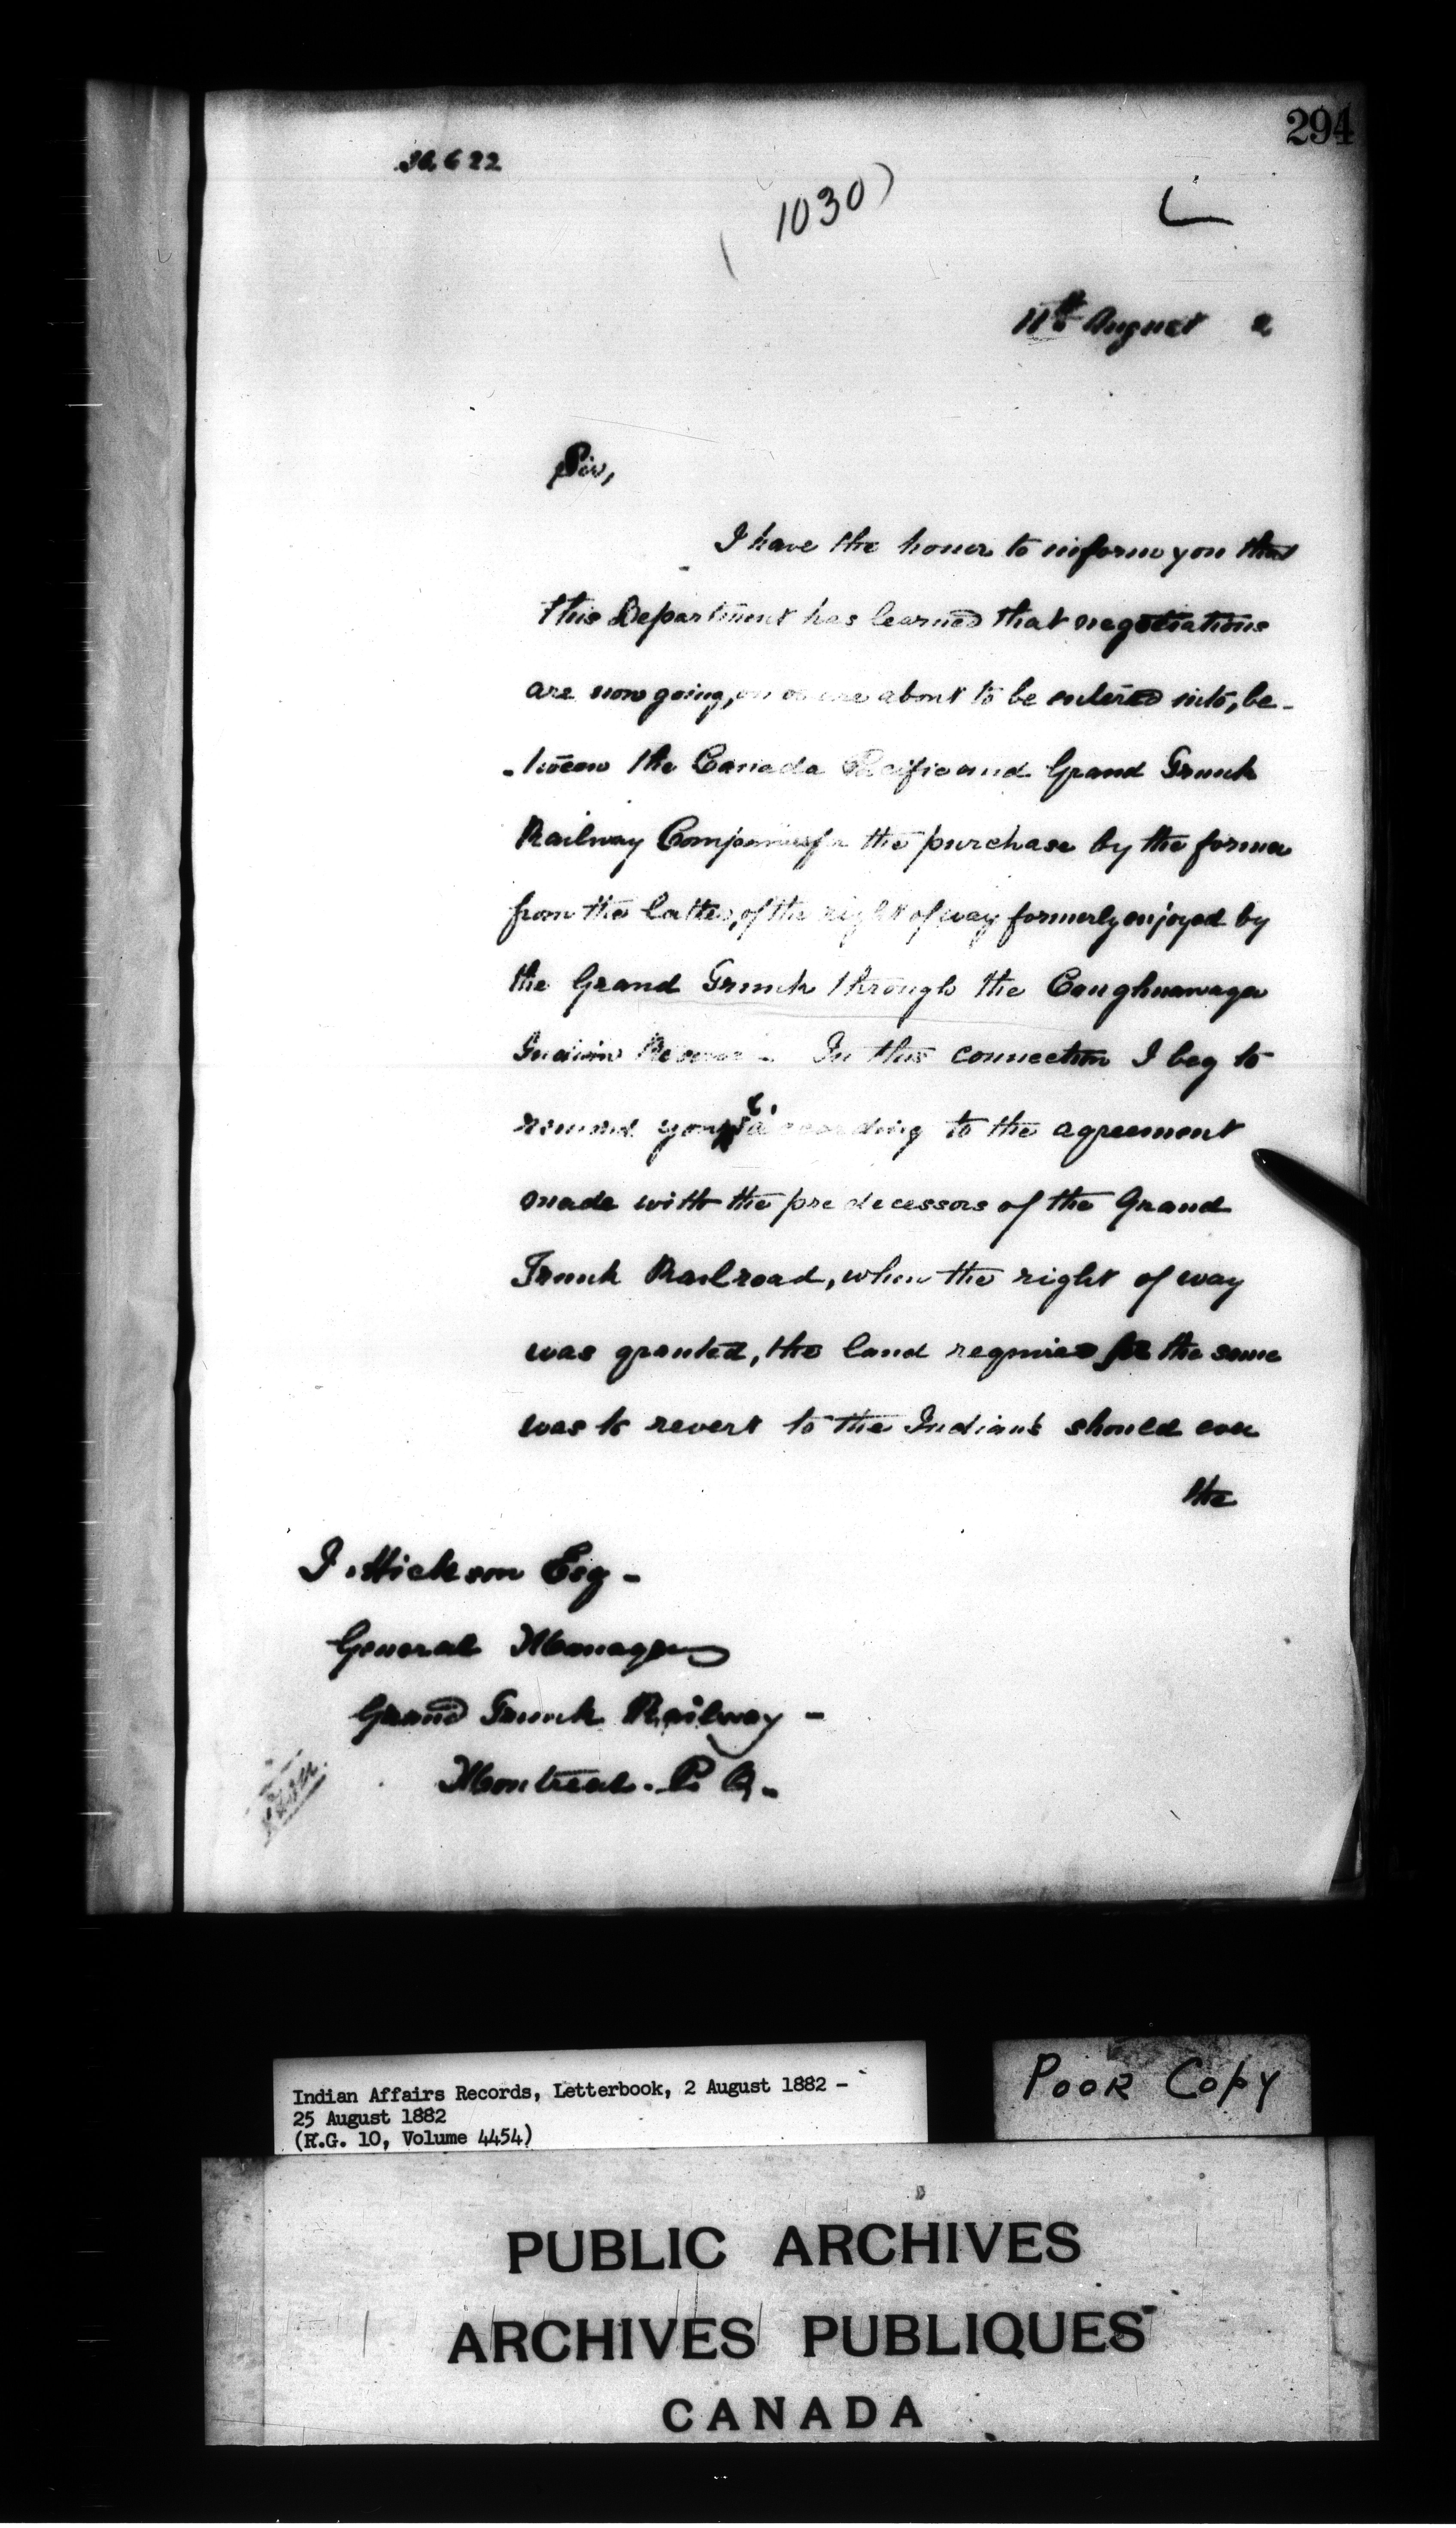 294
36622
(1030)
11th August 2
Sir,
I have the honor to inform you that
this Department has learned that negotiations
are now going, on or are about to be entered into, be-
-tween the Canada Pacific and Grand Trunk
Railway Companies for the purchase by the former
from the latter, of the right of way formerly enjoyed by
the Grand Trunk through the Caughnawaga
Indian Reserve - In this connection I beg to
remind you according to the agreement
made with the predecessors of the Grand
Trunk Railroad, when the right of way
was granted, the land required for the same
was to revert to the Indians should ever
the
J. Hickson Esq -
General Manager
Grand Trunk Railway -
Montreal. P. Q.
Indian Affairs Records, Letterbook, 2 August 1882 -
25 August 1882
(R.G. 10, Volume 4454)
Poor Copy
PUBLIC ARCHIVES
ARCHIVES PUBLIQUES
CANADA